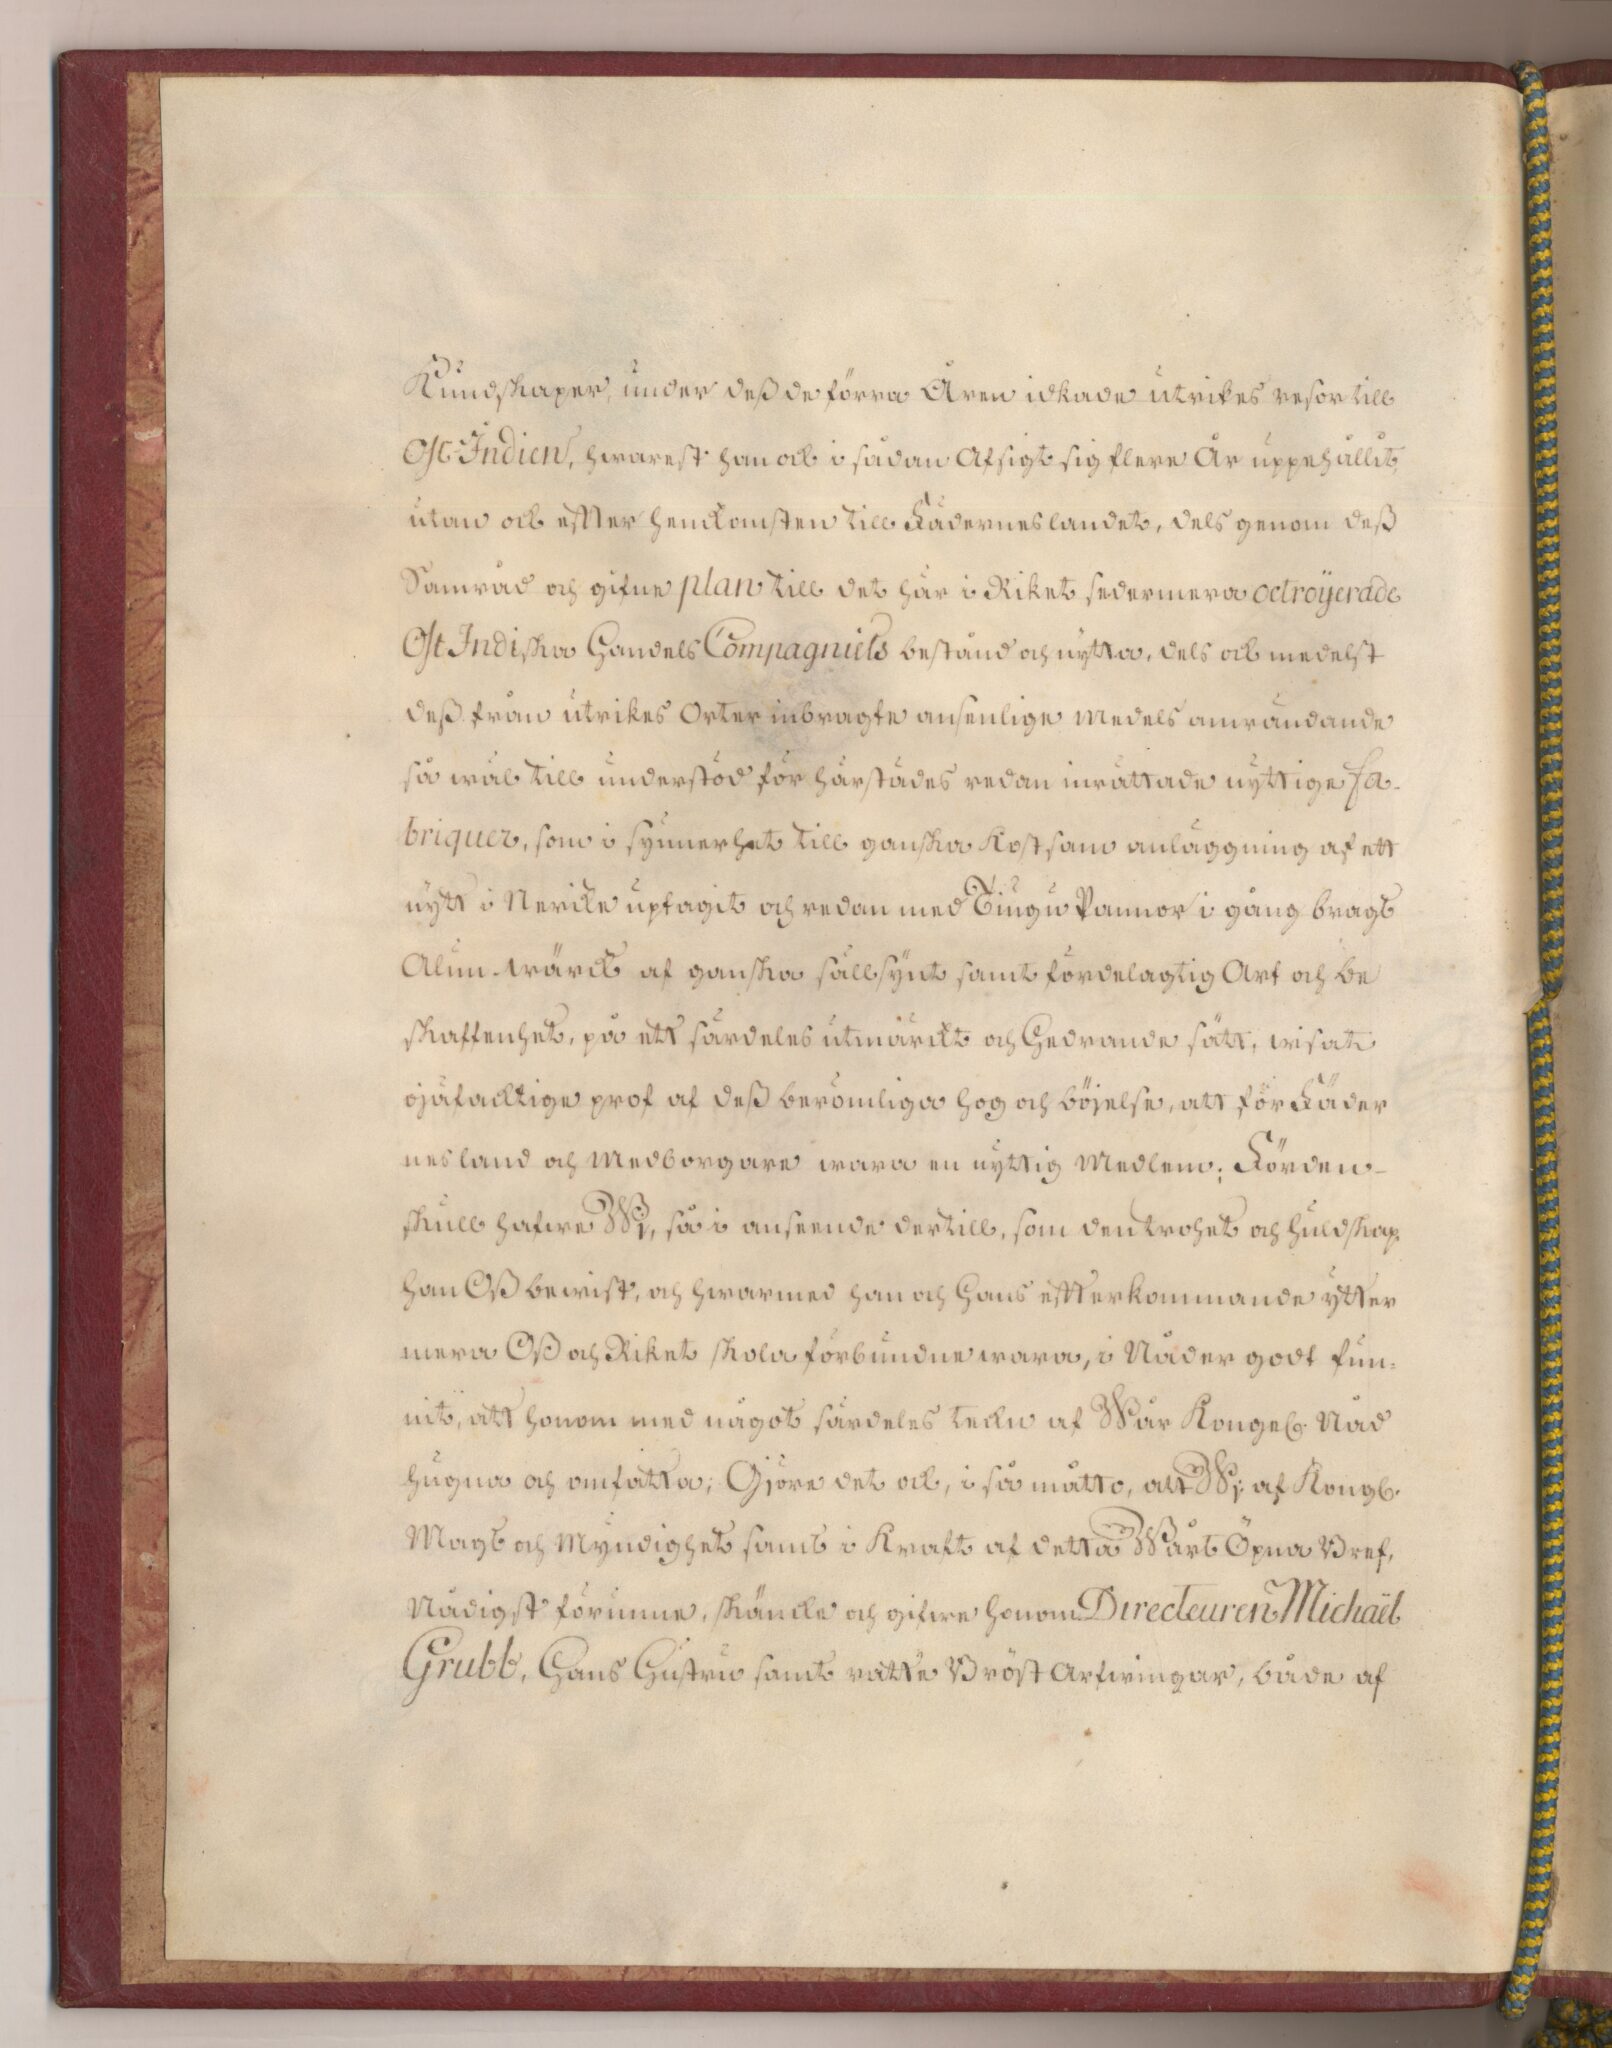 Kundskaper, under deß de förra Åren idkade utrikes resor till
Ost-Indien, hwarest han ock i sådan Afsigt sig flere År uppehållit,
utan ock effter hemkomsten till Fäderneslandet, dels genom deß
Samråd och gifne plan till det här i Riket sedermera octroÿerade
Ost Indiska Handels Compagniets bestånd och nytta, dels ock medelst
deß från utrikes Orter inbragte ansenlige Medels anwändande
så wäl till understöd för härstädes redan inrättade nyttige fa-
briquer, som i synnerhet till ganska Kostsam anläggning af ett
nytt i Nericke uptagit och redan med Tiugu Pannor i gång bragt
Alun-wärck af ganska sällsynt samt fördelagtig Art och be
skaffenhet, på ett särdeles utmärckt och Hedrande sätt, wisat
ojäfacktige prof af deß berömliga hog och böjelse, att för Fäder
nesland och Medborgare wara en nyttig Medlem; Förden-
skull hafwe Wj, så i anseende dertill, som den trohet och huldskap
han Oß bewist, och hwarmed han och Hans effterkommande ytter
mera Oß och Riket skola förbundne wara, i Nåder godt fun-
nit, att honom med något särdeles teckn af Wår Kongel. Nåd
hugna och omfatta; Gjöre det ock, i så måtto, att Wj af Kongl.
Magt och Myndighet samt i Kraft af detta Wårt Öpna Bref,
Nådigst förunne, skäncke och gifwe honom Directeuren Michaël
Grubb, Hans Hustru samt ratte Bröst Arfwingar, både af